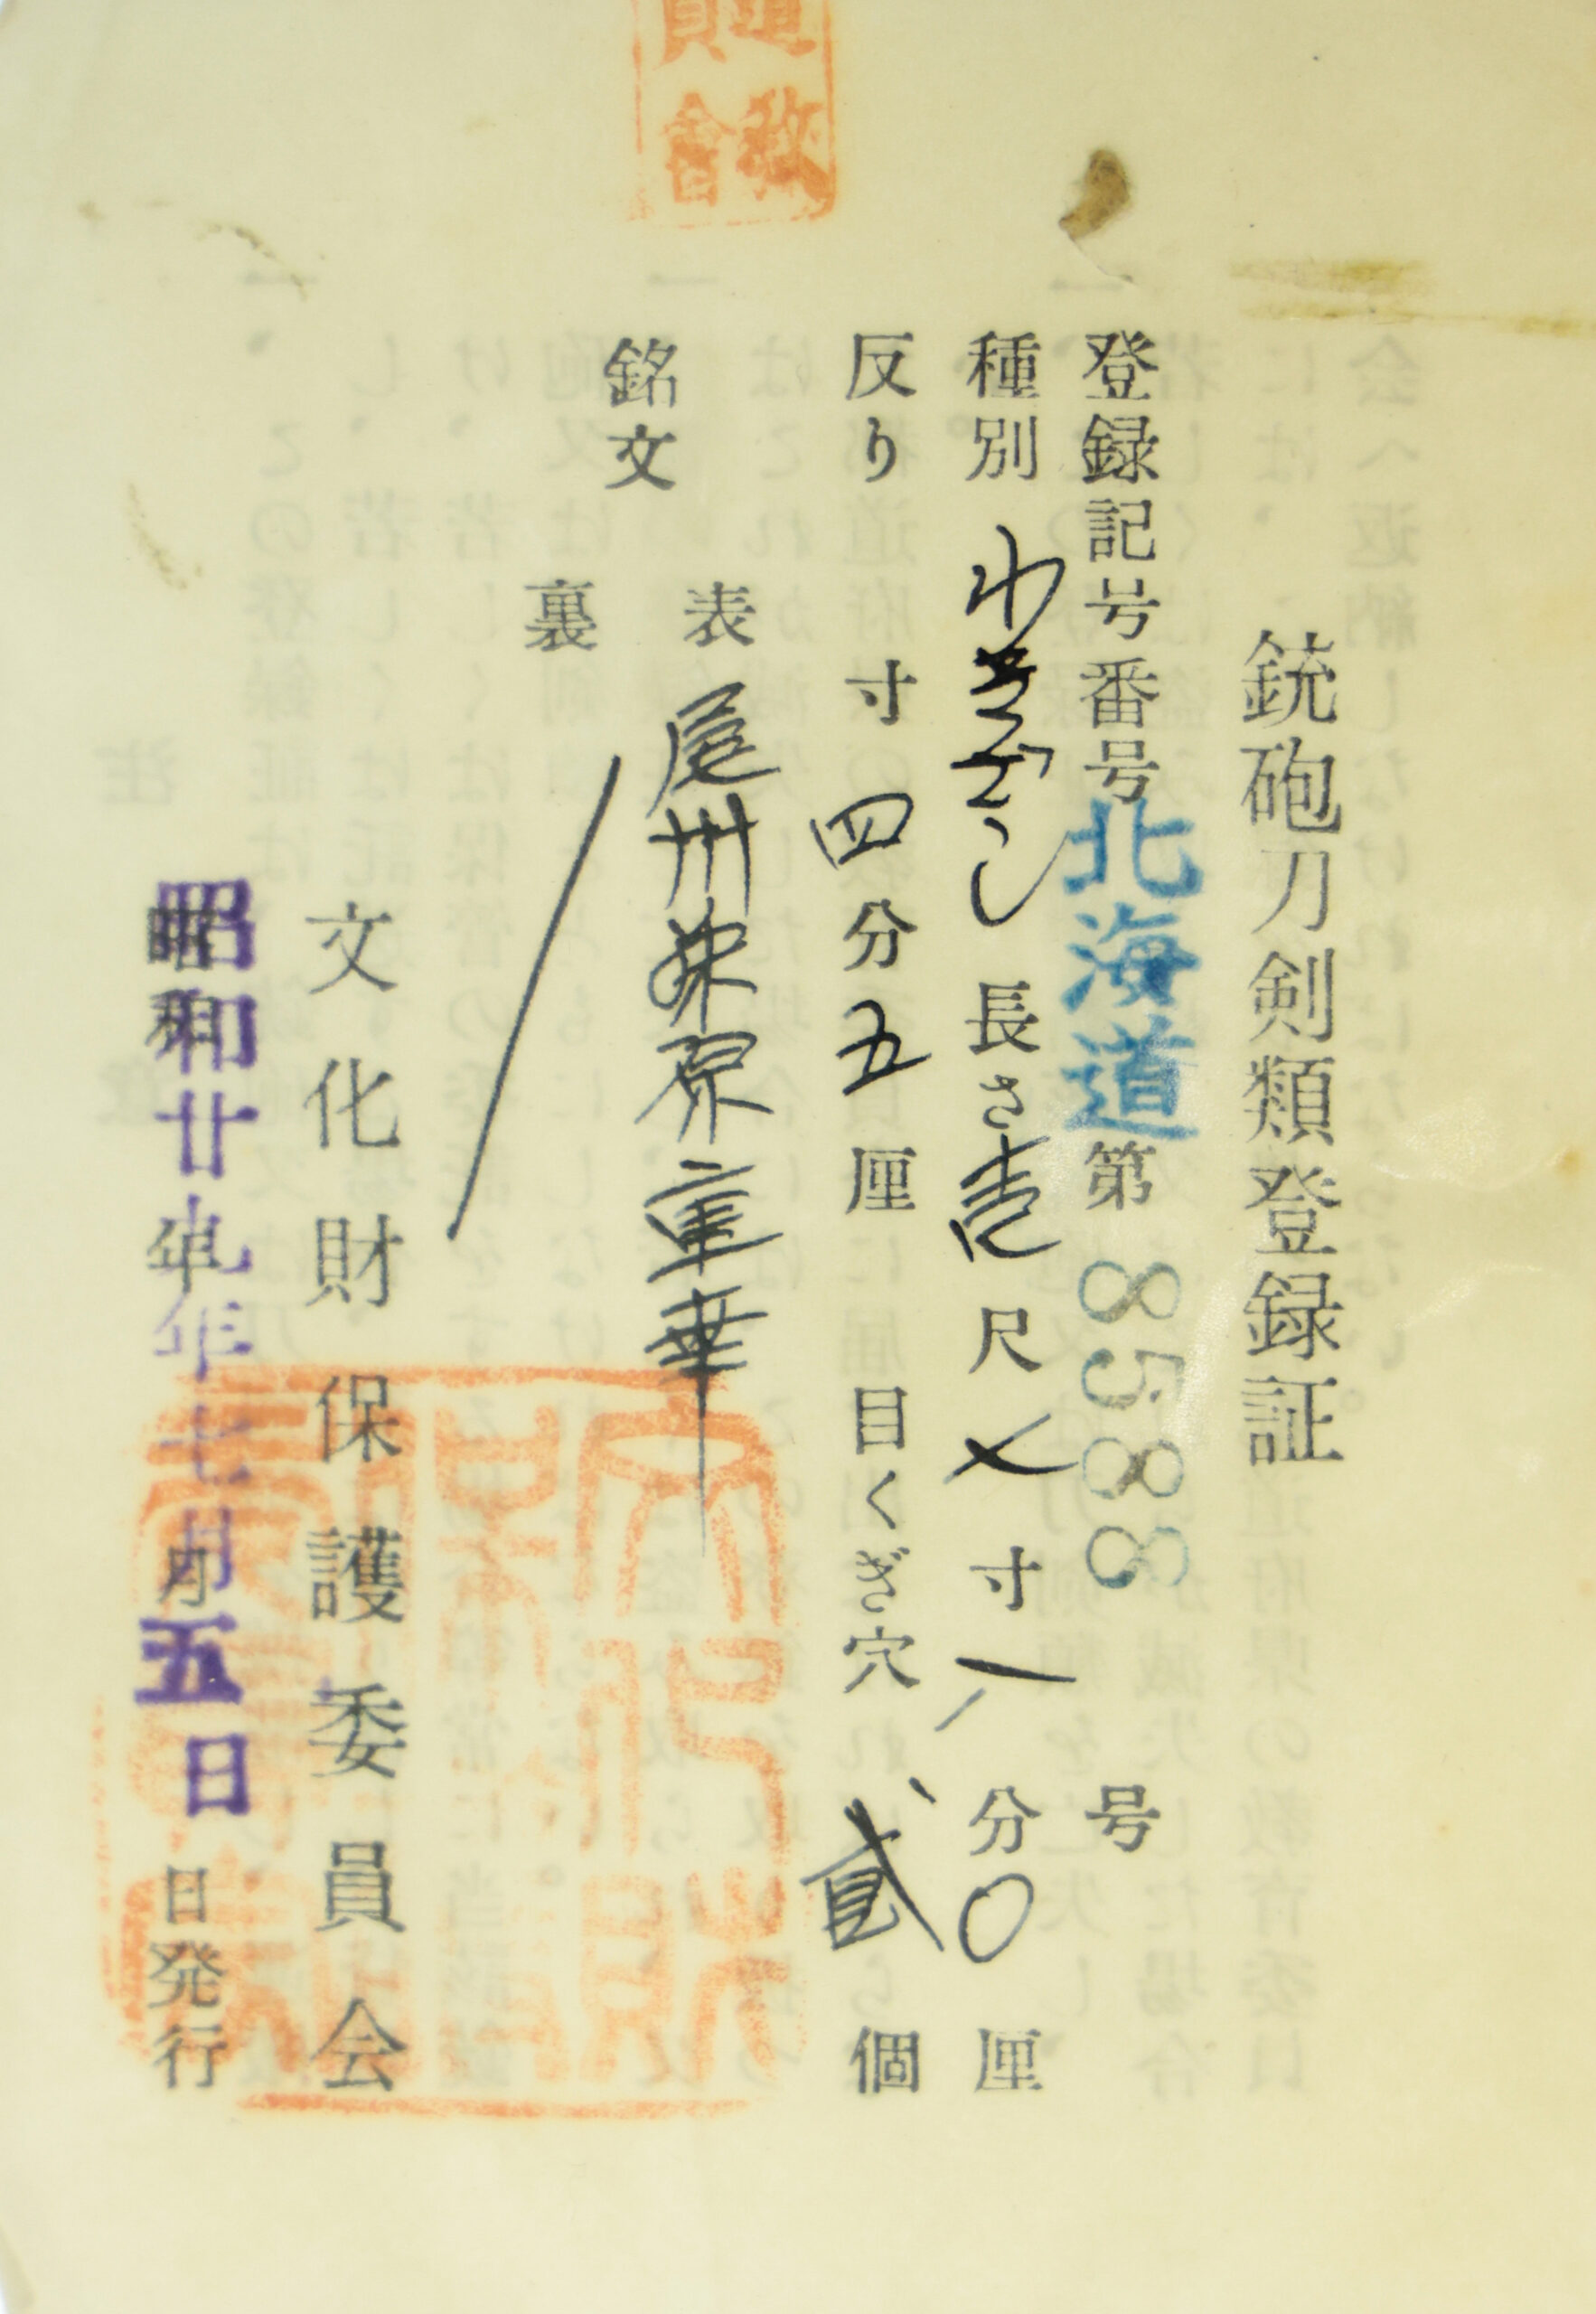 銃砲刀剣類登録証
登録記号番号北海道第8583号
種別 わきざし 長さ 壱尺 七寸 一分 〇厘
反り 寸 四分 五厘 目くぎ穴 貳個
銘文
表 尾州藤原
裏
文化財保護委員会
昭和廿九年七月五日 日発行
道教
員會